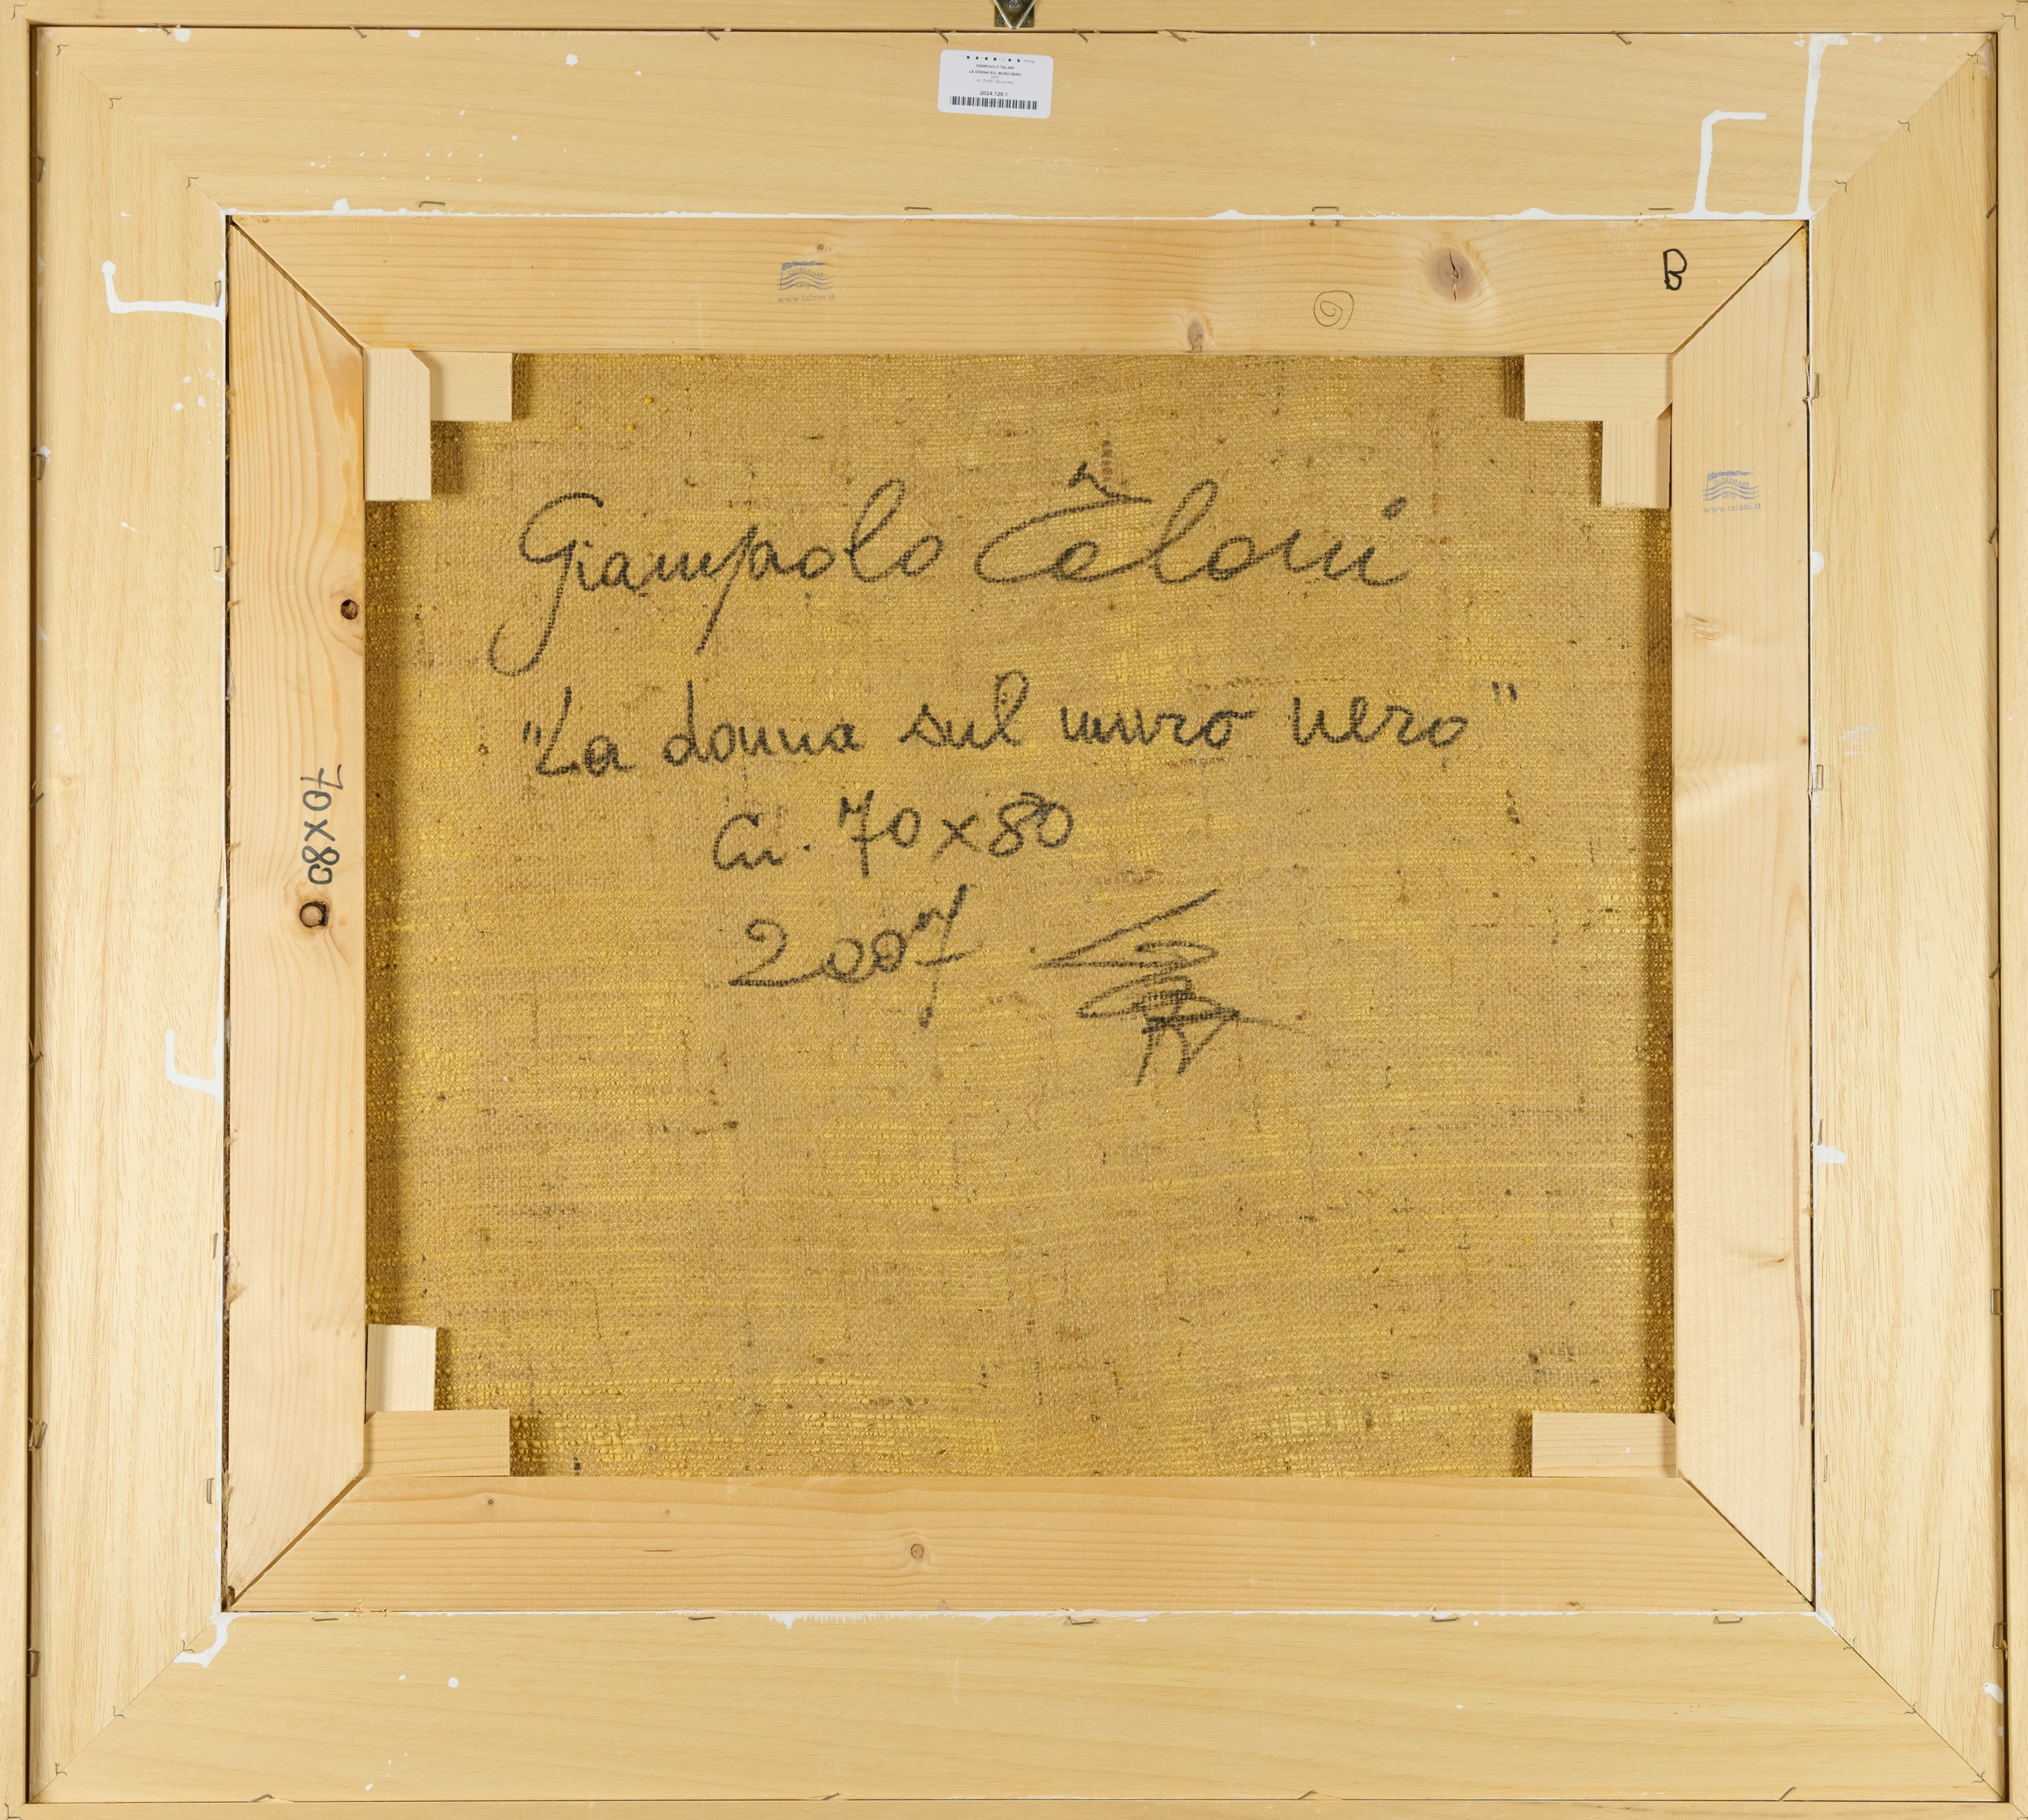 GIAMPAOLO TALANI
LA DONNA SUL MURO NERO
2007
2024.128.1
www.talani.it
B
www.talani.it
Giampaolo Talani
"La donna sul muro nero"
Cm. 70x80
2007
70x80